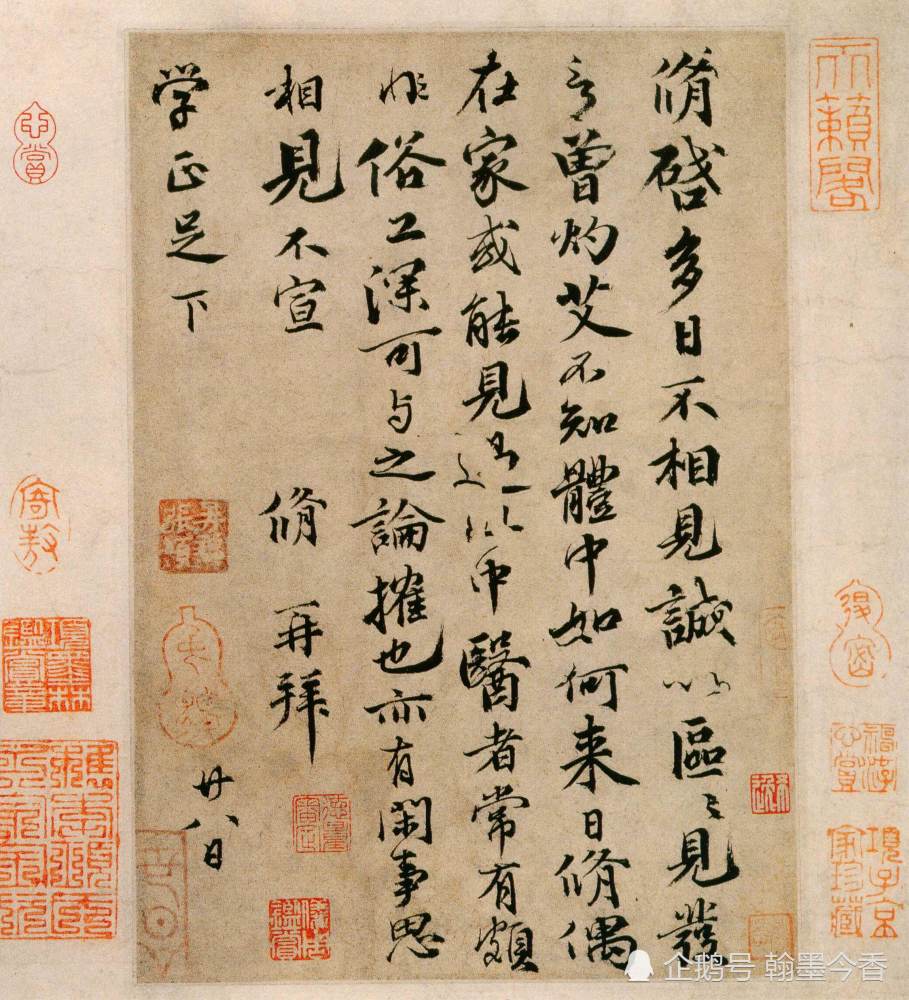 脩啓多日不相見誠以區〻見發
言曾灼艾不知體中如何来日脩偶
在家或能見過此中醫者常有頗
非俗工深可与之論搉也亦有閑事思
相見不宣 脩再拜
学正足下 廿八日
天籟閣
項子京家珍藏
企鹅号 翰墨今香